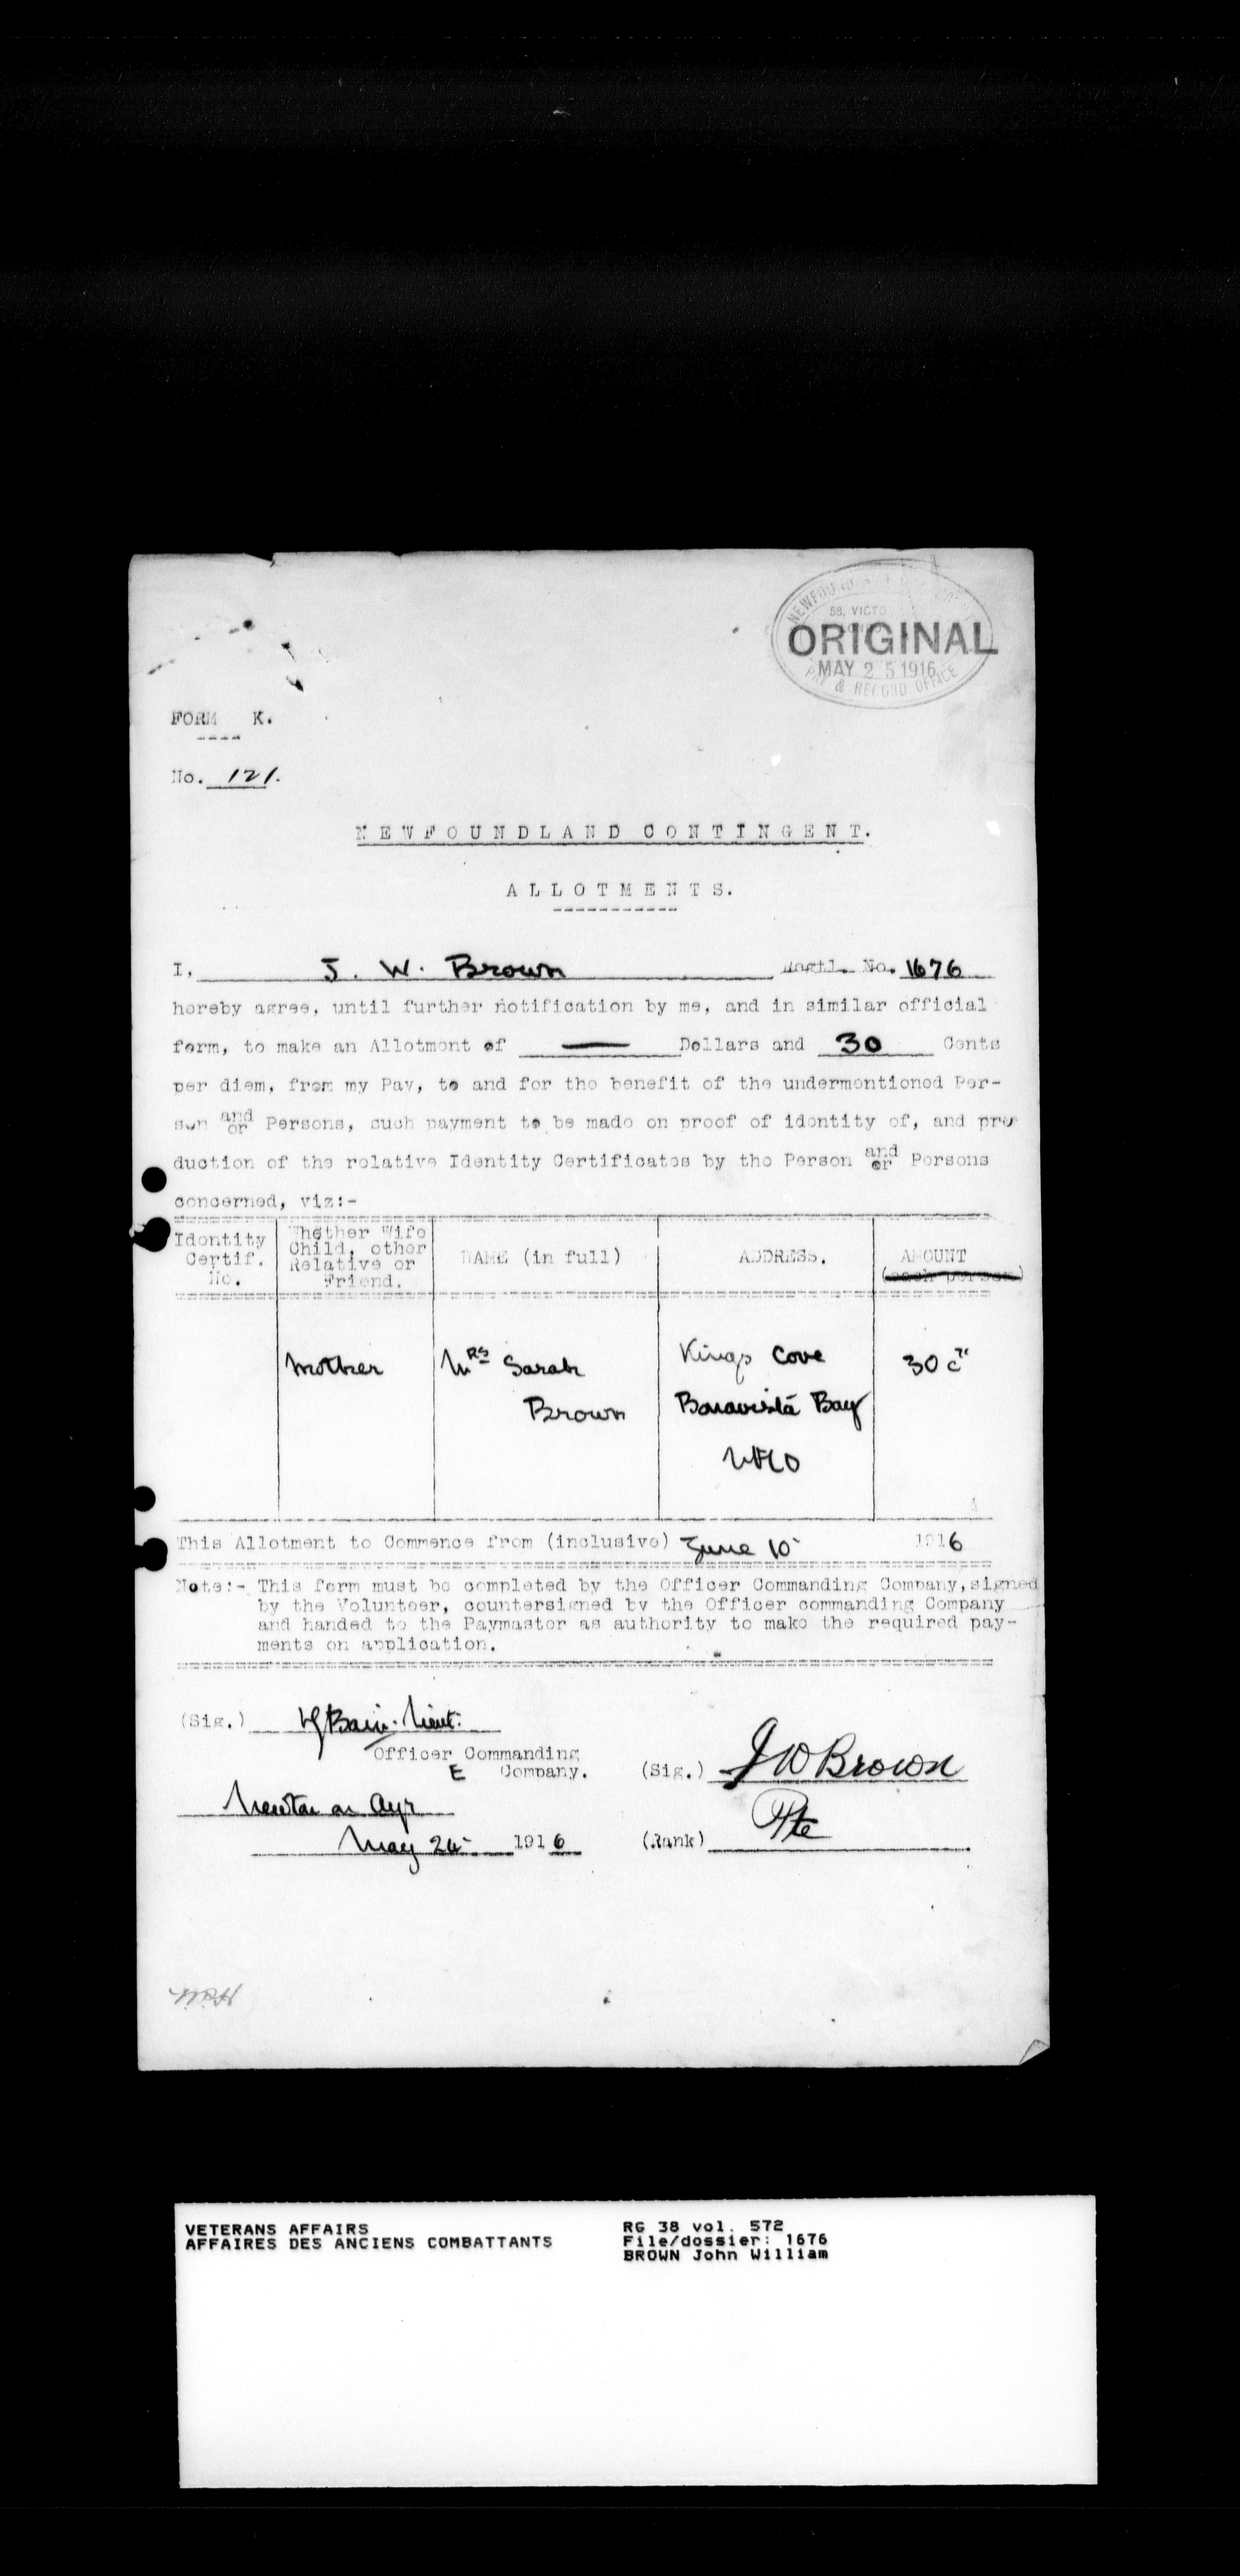 NEWFOUND
58, VICTO
ORIGINAL
MAY 25 1916
PAY & RECORD OFFICE
FORM K.
No. 121.
NEWFOUNDLAND CONTINGENT.
ALLOTMENTS.
I, J. W. Brown Regtl. No. 1676
hereby agree, until further notification by me, and in similar official
form, to make an Allotment of — Dollars and 30 Cents
per diem, from my Pay, to and for the benefit of the undermentioned Per-
son and/or Persons, such payment to be made on proof of identity of, and pro
duction of the relative Identity Certificates by the Person and/or Persons
concerned, viz:-
Identity Certif. No. | Whether Wife Child, other Relative or Friend. | NAME (in full) | ADDRESS. | AMOUNT (each person)
Mother Mrs Sarah Kings Cove 30 cts
Brown Bonavista Bay
NFLD
This Allotment to Commence from (inclusive) June 10 1916
Note:- This form must be completed by the Officer Commanding Company, signed
by the Volunteer, countersigned by the Officer commanding Company
and handed to the Paymaster as authority to make the required pay-
ments on application.
(Sig.) Bain. Lieut.
Officer Commanding
E Company.
(Sig.) J W Brown
Newton on Ayr
May 24 1916
(Rank) Pte
VETERANS AFFAIRS
AFFAIRES DES ANCIENS COMBATTANTS
RG 38 vol. 572
File/dossier: 1676
BROWN John William